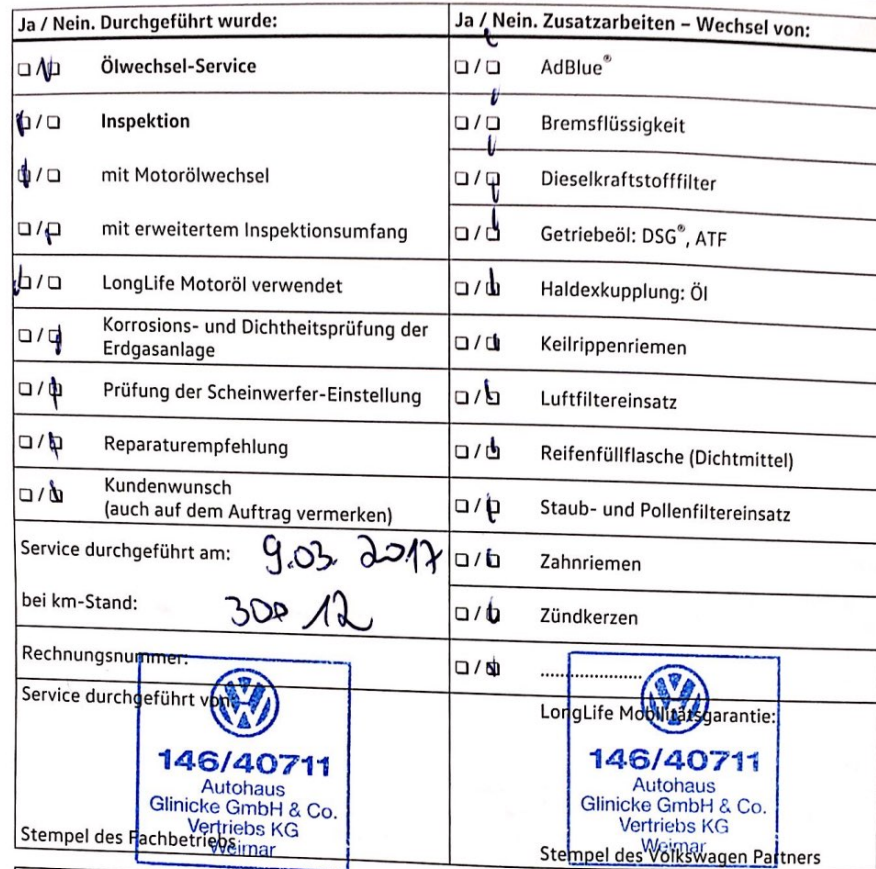 Ja / Nein. Durchgeführt wurde:
☐ / ☐ Ölwechsel-Service
☐ / ☐ Inspektion
☐ / ☐ mit Motorölwechsel
☐ / ☐ mit erweitertem Inspektionsumfang
☐ / ☐ LongLife Motoröl verwendet
☐ / ☐ Korrosions- und Dichtheitsprüfung der
Erdgasanlage
☐ / ☐ Prüfung der Scheinwerfer-Einstellung
☐ / ☐ Reparaturempfehlung
☐ / ☐ Kundenwunsch
(auch auf dem Auftrag vermerken)
Service durchgeführt am: 9.03. 2017
bei km-Stand: 300 12
Rechnungsnummer:
Service durchgeführt von:
VW
146/40711
Autohaus
Glinicke GmbH & Co.
Vertriebs KG
Weimar
Stempel des Fachbetriebs
Ja / Nein. Zusatzarbeiten – Wechsel von:
☐ / ☐ AdBlue®
☐ / ☐ Bremsflüssigkeit
☐ / ☐ Dieselkraftstofffilter
☐ / ☐ Getriebeöl: DSG®, ATF
☐ / ☐ Haldexkupplung: Öl
☐ / ☐ Keilrippenriemen
☐ / ☐ Luftfiltereinsatz
☐ / ☐ Reifenfüllflasche (Dichtmittel)
☐ / ☐ Staub- und Pollenfiltereinsatz
☐ / ☐ Zahnriemen
☐ / ☐ Zündkerzen
☐ / ☐ .....................
LongLife Mobilitätsgarantie:
VW
146/40711
Autohaus
Glinicke GmbH & Co.
Vertriebs KG
Weimar
Stempel des Volkswagen Partners